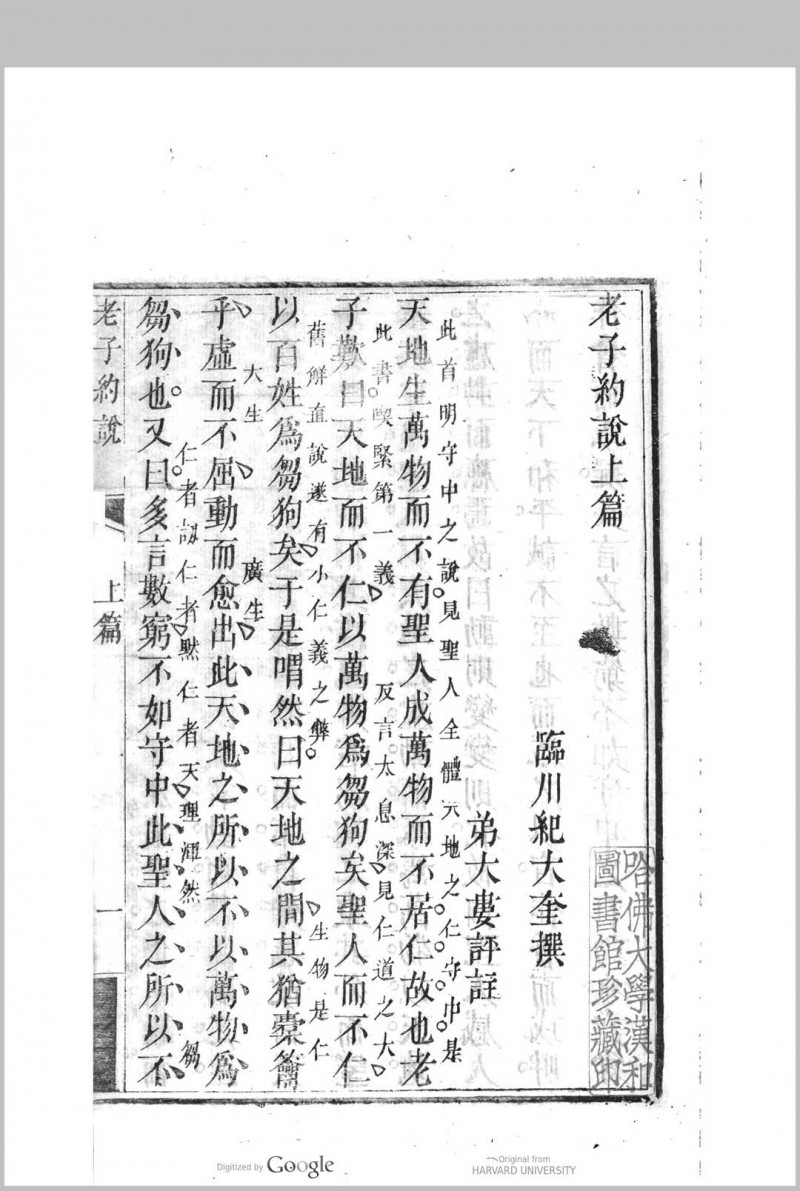 老子約說上篇
臨川紀大奎撰
弟大婁評註
此首明守中之說見聖人全體天地之仁守中是
天地生萬物而不有聖人成萬物而不居仁故也老
此書喫緊第一義 反言太息深見仁道之大
子歎曰天地而不仁以萬物爲芻狗矣聖人而不仁
舊解直說遂有小仁義之弊 生物是仁
以百姓爲芻狗矣于是喟然曰天地之間其猶橐籥
大生 廣生
乎虛而不屈動而愈出此天地之所以不以萬物爲
芻
仁者訒仁者默仁者天理渾然
芻狗也又曰多言數窮不如守中此聖人之所以不
老子約說
上篇
一
哈佛大學漢和
圖書館珍藏印
Digitized by Google
Original from
HARVARD UNIVERSITY